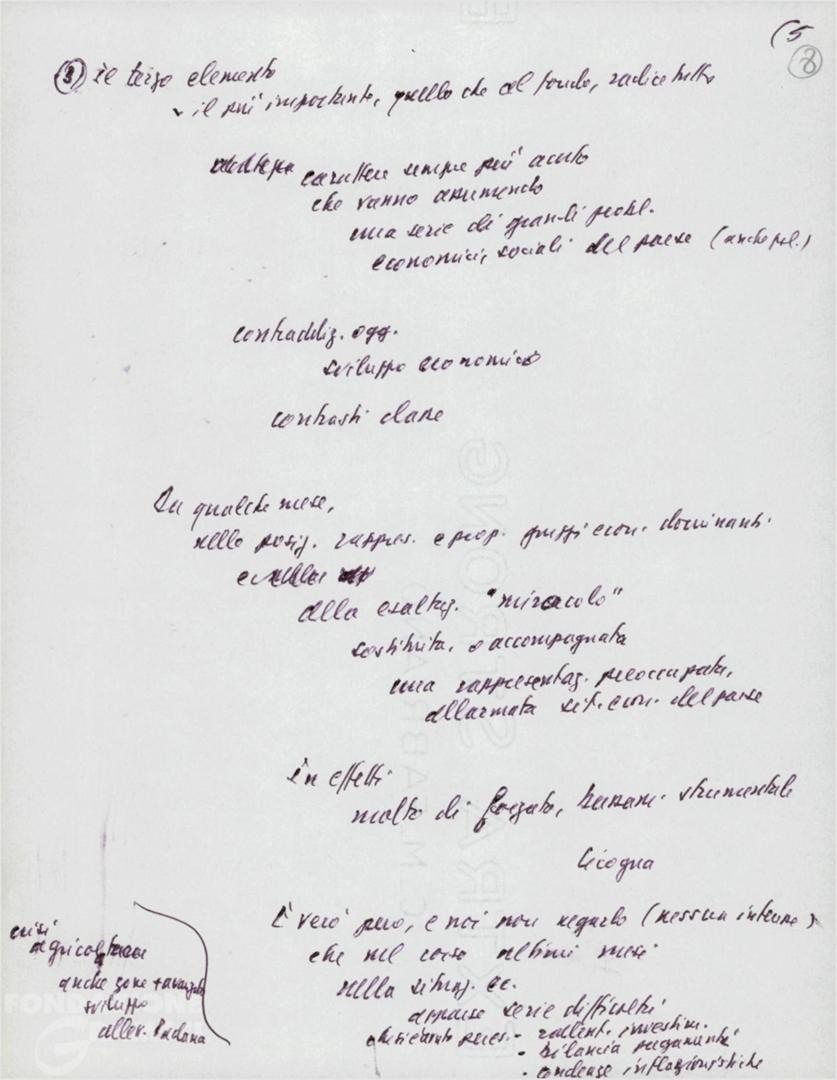 (5
8
(3) il terzo elemento
il più importante, quello che al fondo, radice tutto
carattere sempre più acuto
che vanno assumendo
una serie di grandi probl.
economici, sociali del paese (anche pol.)
contraddiz. ogg.
sviluppo economico
contrasti classe
Da qualche mese,
nelle posiz. rappres. e prop. gruppi econ. dominanti
alla esaltaz. "miracolo"
sostituita, o accompagnata
una rappresentaz. preoccupata,
allarmata sit. econ. del paese
in effetti
molto di forzato, strumentale
Cicogna
È vero però, e noi non negarlo (nessun interesse)
che nel corso ultimi mesi
nella situaz. ec.
apparse serie difficoltà
- rallent. investim.
- bilancia pagamenti
- tendenze inflazionistiche
crisi
agricoltura
anche zone + avanzato
sviluppo
allev. Padana
FONDAZIONE
G
EXTRA STRONG